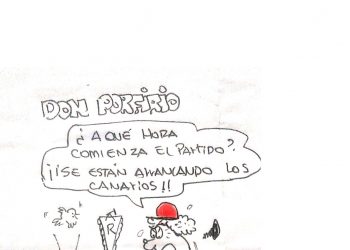 DON PORFIRIO
¿A QUÉ HORA
COMIENZA EL PARTIDO?
¡¡SE ESTÁN ARRANCANDO LOS
CANARIOS!!
R